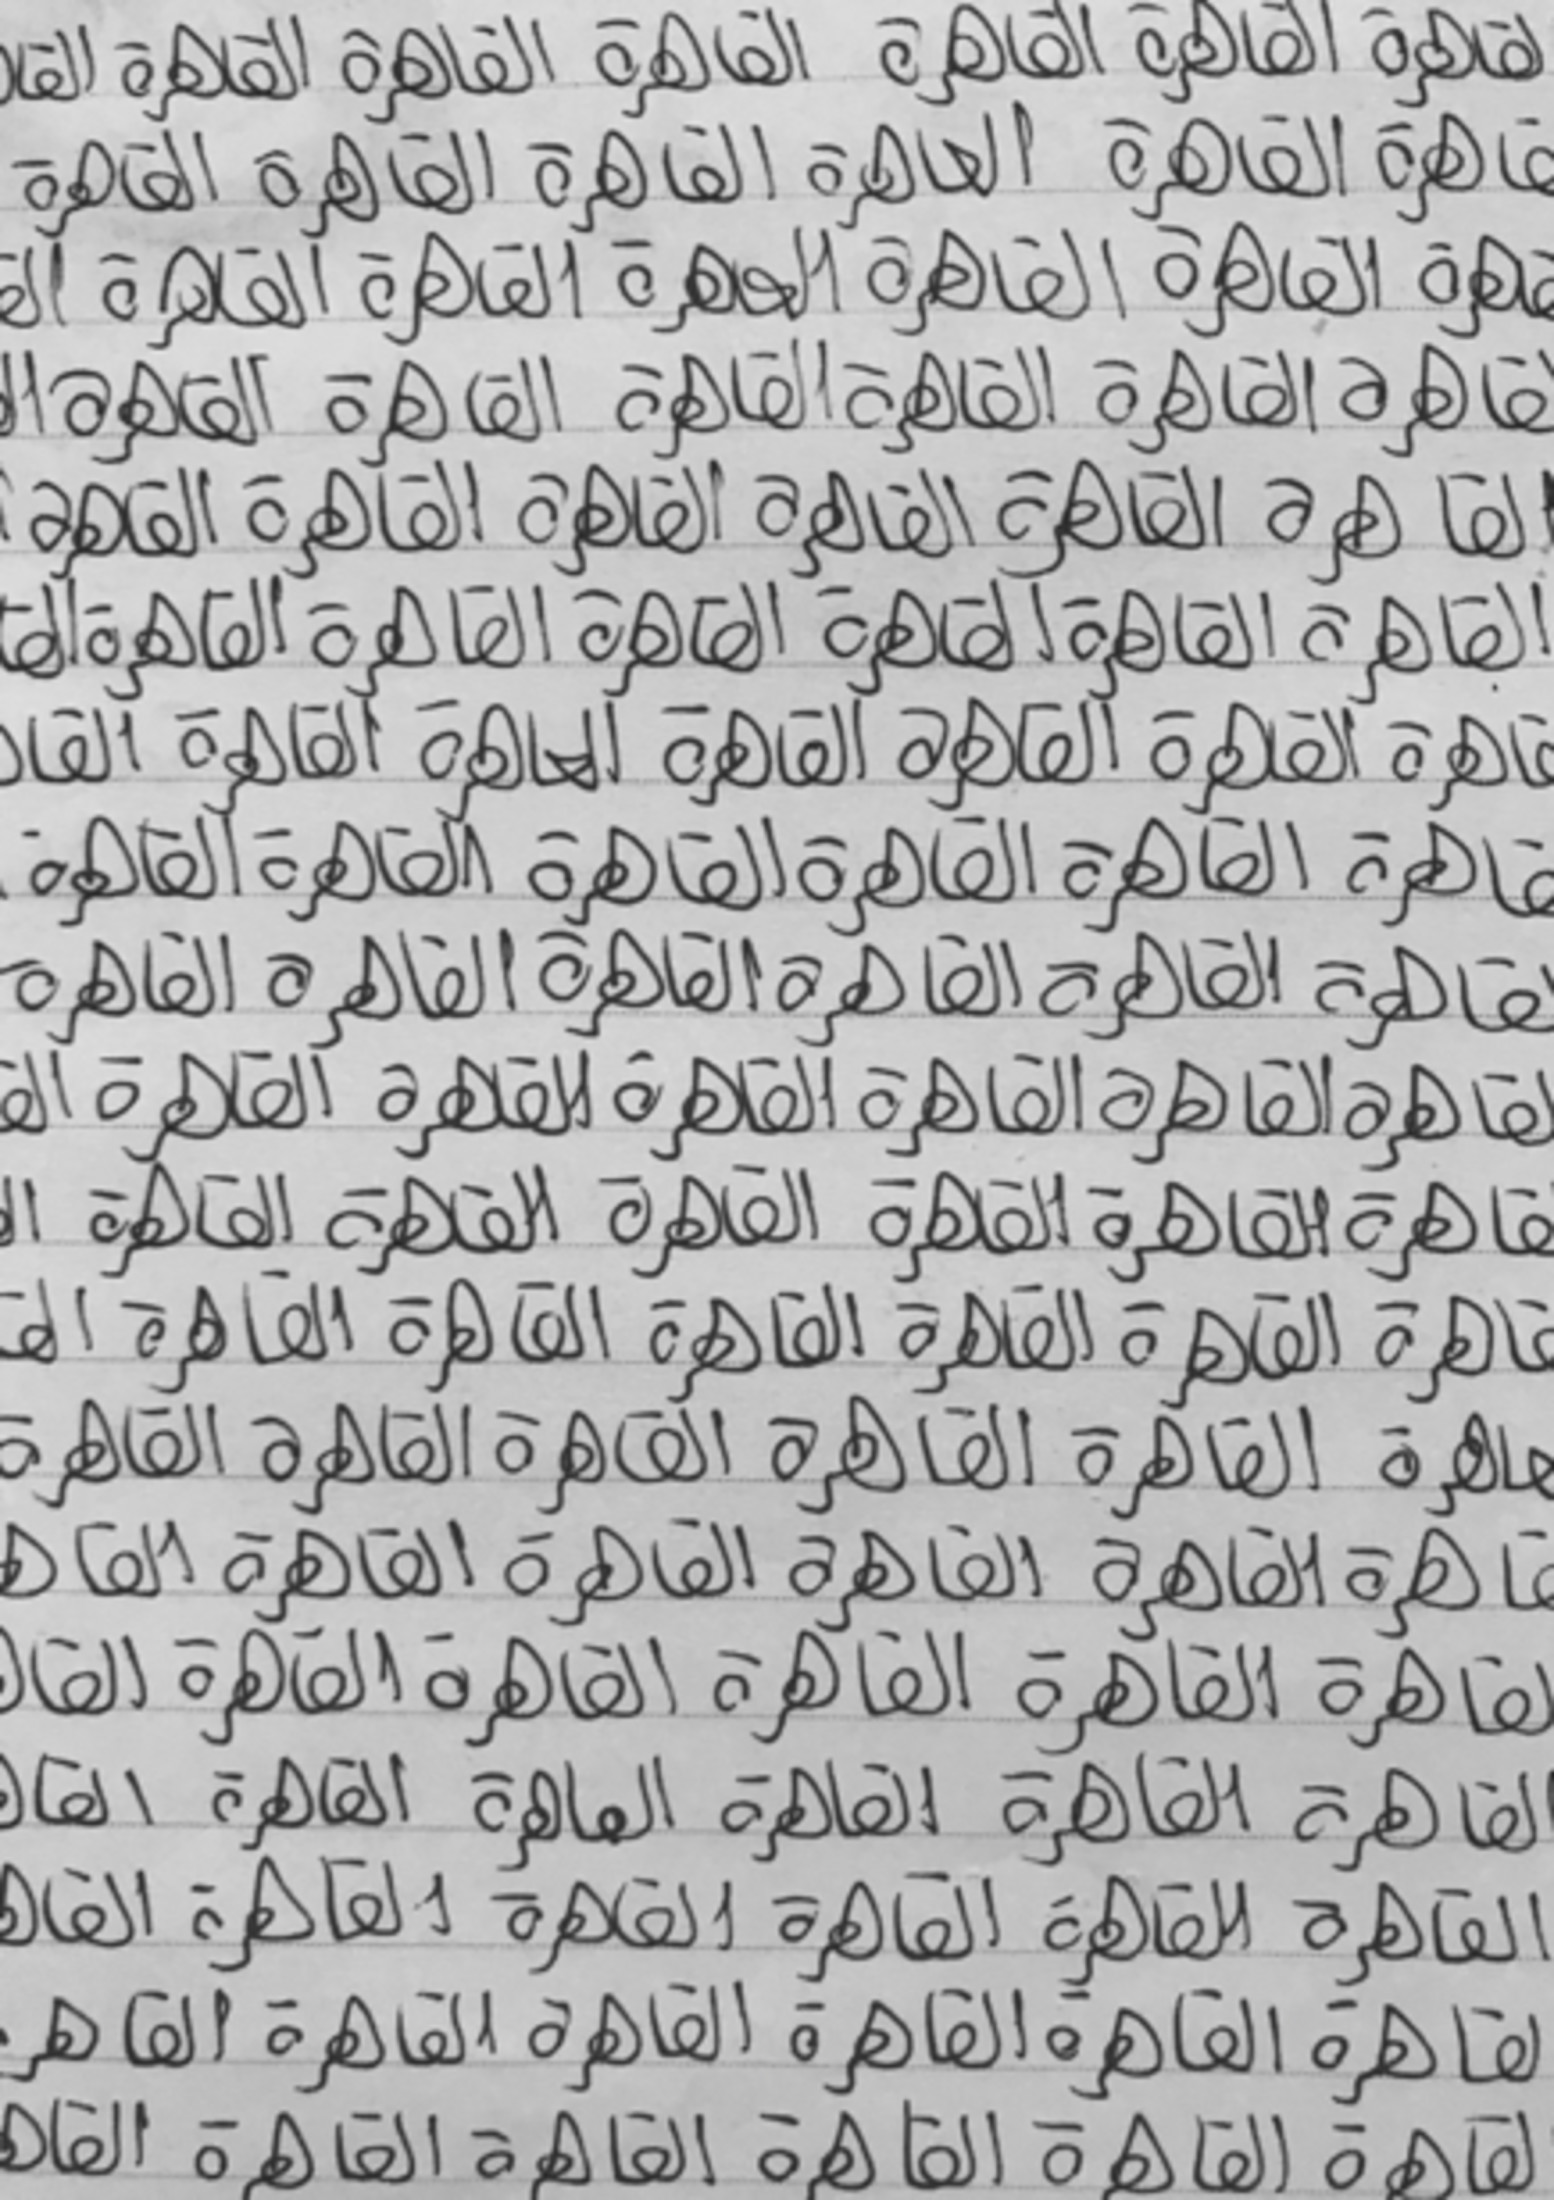 قاهرة القاهرة القاهرة القاهرة القاهرة القاهرة القا
قاهرة القاهرة القاهرة القاهرة القاهرة القاهرة
قاهرة القاهرة القاهرة القاهرة القاهرة القاهرة الق
لقاهرة القاهرة القاهرة القاهرة القاهرة القاهرة ال
القاهرة القاهرة القاهرة القاهرة القاهرة القاهرة
القاهرة القاهرة القاهرة القاهرة القاهرة القاهرة القا
قاهرة القاهرة القاهرة القاهرة القاهرة القاهرة القا
قاهرة القاهرة القاهرة القاهرة القاهرة القاهرة
لقاهرة القاهرة القاهرة القاهرة القاهرة القاهرة
لقاهرة القاهرة القاهرة القاهرة القاهرة القاهرة الق
لقاهرة القاهرة القاهرة القاهرة القاهرة القاهرة ال
قاهرة القاهرة القاهرة القاهرة القاهرة القاهرة الق
قاهرة القاهرة القاهرة القاهرة القاهرة القاهرة
قاهرة القاهرة القاهرة القاهرة القاهرة القاه
لقاهرة القاهرة القاهرة القاهرة القاهرة القا
القاهرة القاهرة القاهرة القاهرة القاهرة القا
القاهرة القاهرة القاهرة القاهرة القاهرة القا
لقاهرة القاهرة القاهرة القاهرة القاهرة القاهر
لقاهرة القاهرة القاهرة القاهرة القاهرة القاه